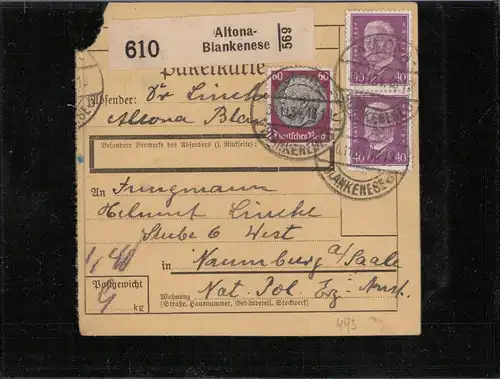 610
Altona-
Blankenese
569
Paketkarte
60 60
Deutsches Reich
40 40
40 40
BLANKENESE
BLANKENESE
Absender: Dr Lincke
Altona Blan
Besondere Vermerke des Absenders (s. Rückseite):
An Jungmann
Helmut Lincke
Stube 6 West
in Naumburg a/Saale
Nat. Pol. Erz. Anst.
Postgewicht
kg
Wohnung
(Straße, Hausnummer, Gebäudeteil, Stockwerk)
495